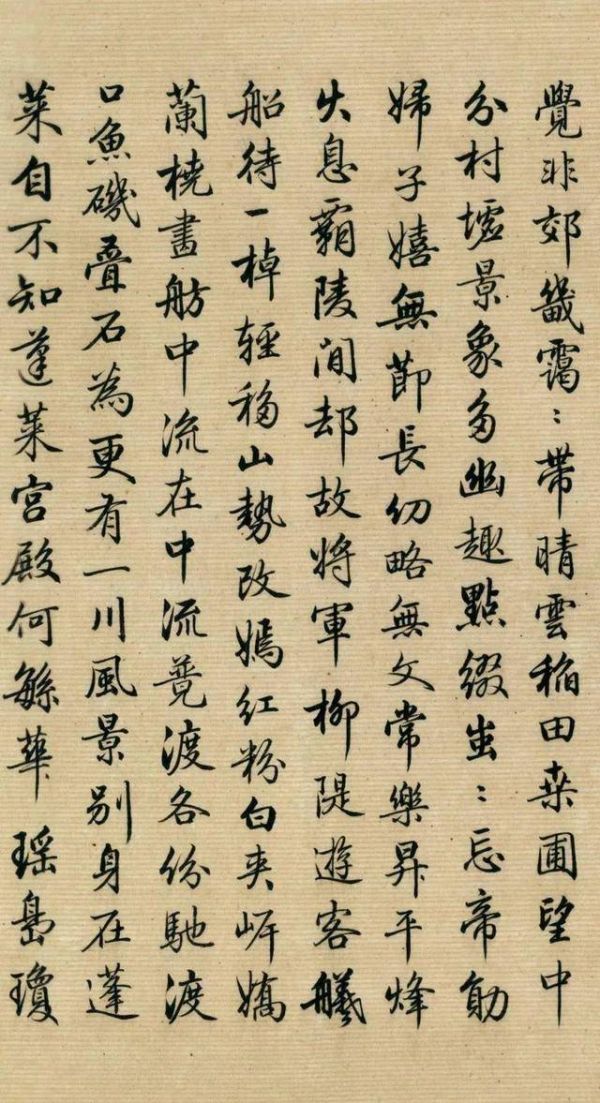 覺非郊畿靄〻帶晴雲稲田桒圃望中
分村墟景象多幽趣點綴蚩〻忘帝勛
婦子嬉無莭長幼略無文常樂昇平烽
火息霸陵閒却故將軍柳隄遊客艤
船待一棹輕移山勢改嫣紅粉白夾岸嬌
蘭橈畫舫中流在中流競渡各份馳渡
口魚磯疊石為更有一川風景別身在蓬
萊自不知蓬萊宮殿何繁華瑤島瓊